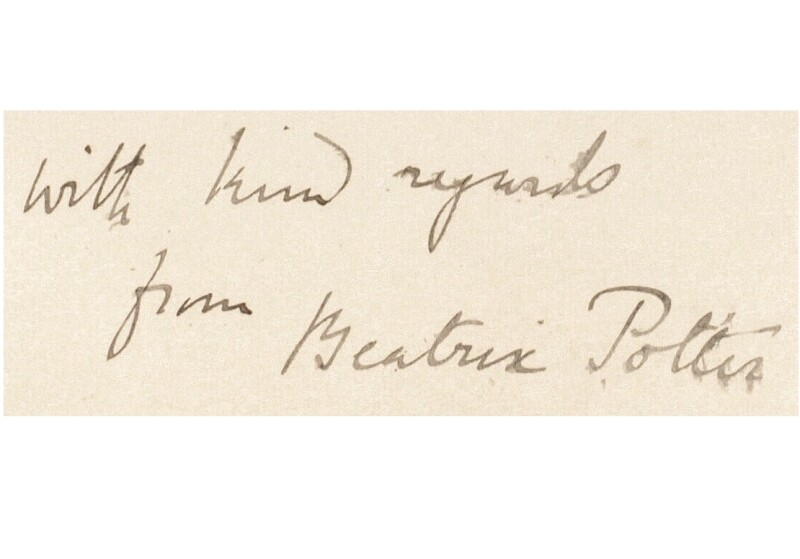 with kind regards
from Beatrix Potter